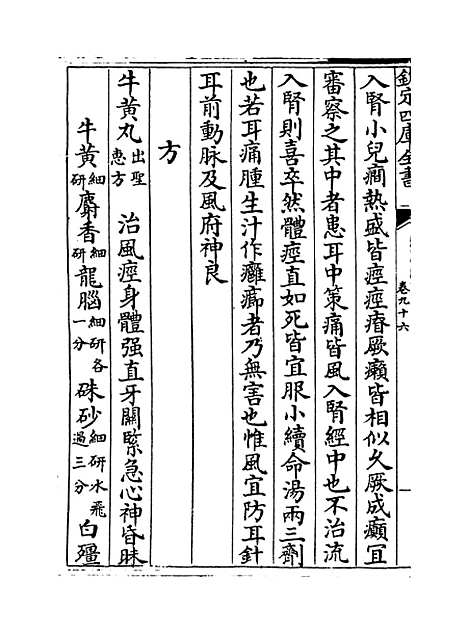 欽定四庫全書
卷九十六
入腎小兒癎熱盛皆痙痙瘠厥癩皆相似久厥成癲宜
審察之其中者患耳中策痛皆風入腎經中也不治流
入腎則喜卒然體痙直如死皆宜服小續命湯兩三劑
也若耳痛腫生汁作癰癤者乃無害也惟風宜防耳針
耳前動脉及風府神良
方
牛黄丸出聖惠方 治風痙身體强直牙關緊急心神昏昧
牛黄細研麝香細研龍腦細研各一分硃砂細研水飛過三分白殭